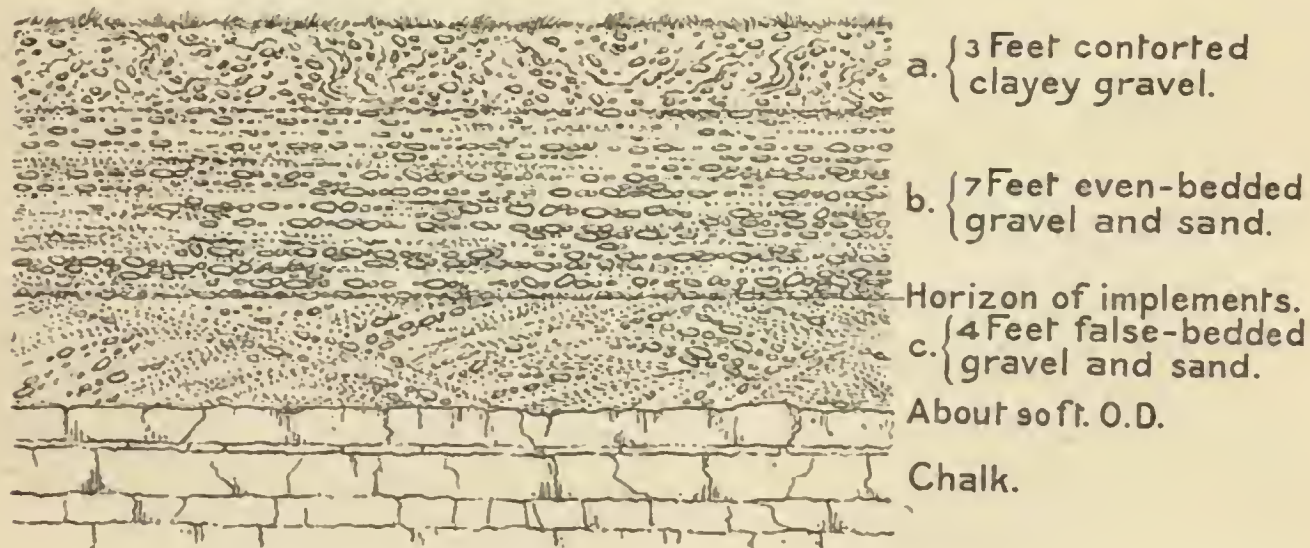 a. 3 Feet contorted
clayey gravel.
b. 7 Feet even-bedded
gravel and sand.
Horizon of implements.
c. 4 Feet false-bedded
gravel and sand.
About 90 ft. O.D.
Chalk.